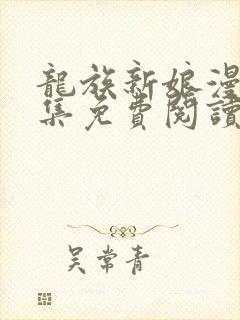 龍族新娘漫
集免費閱讀
吴常青